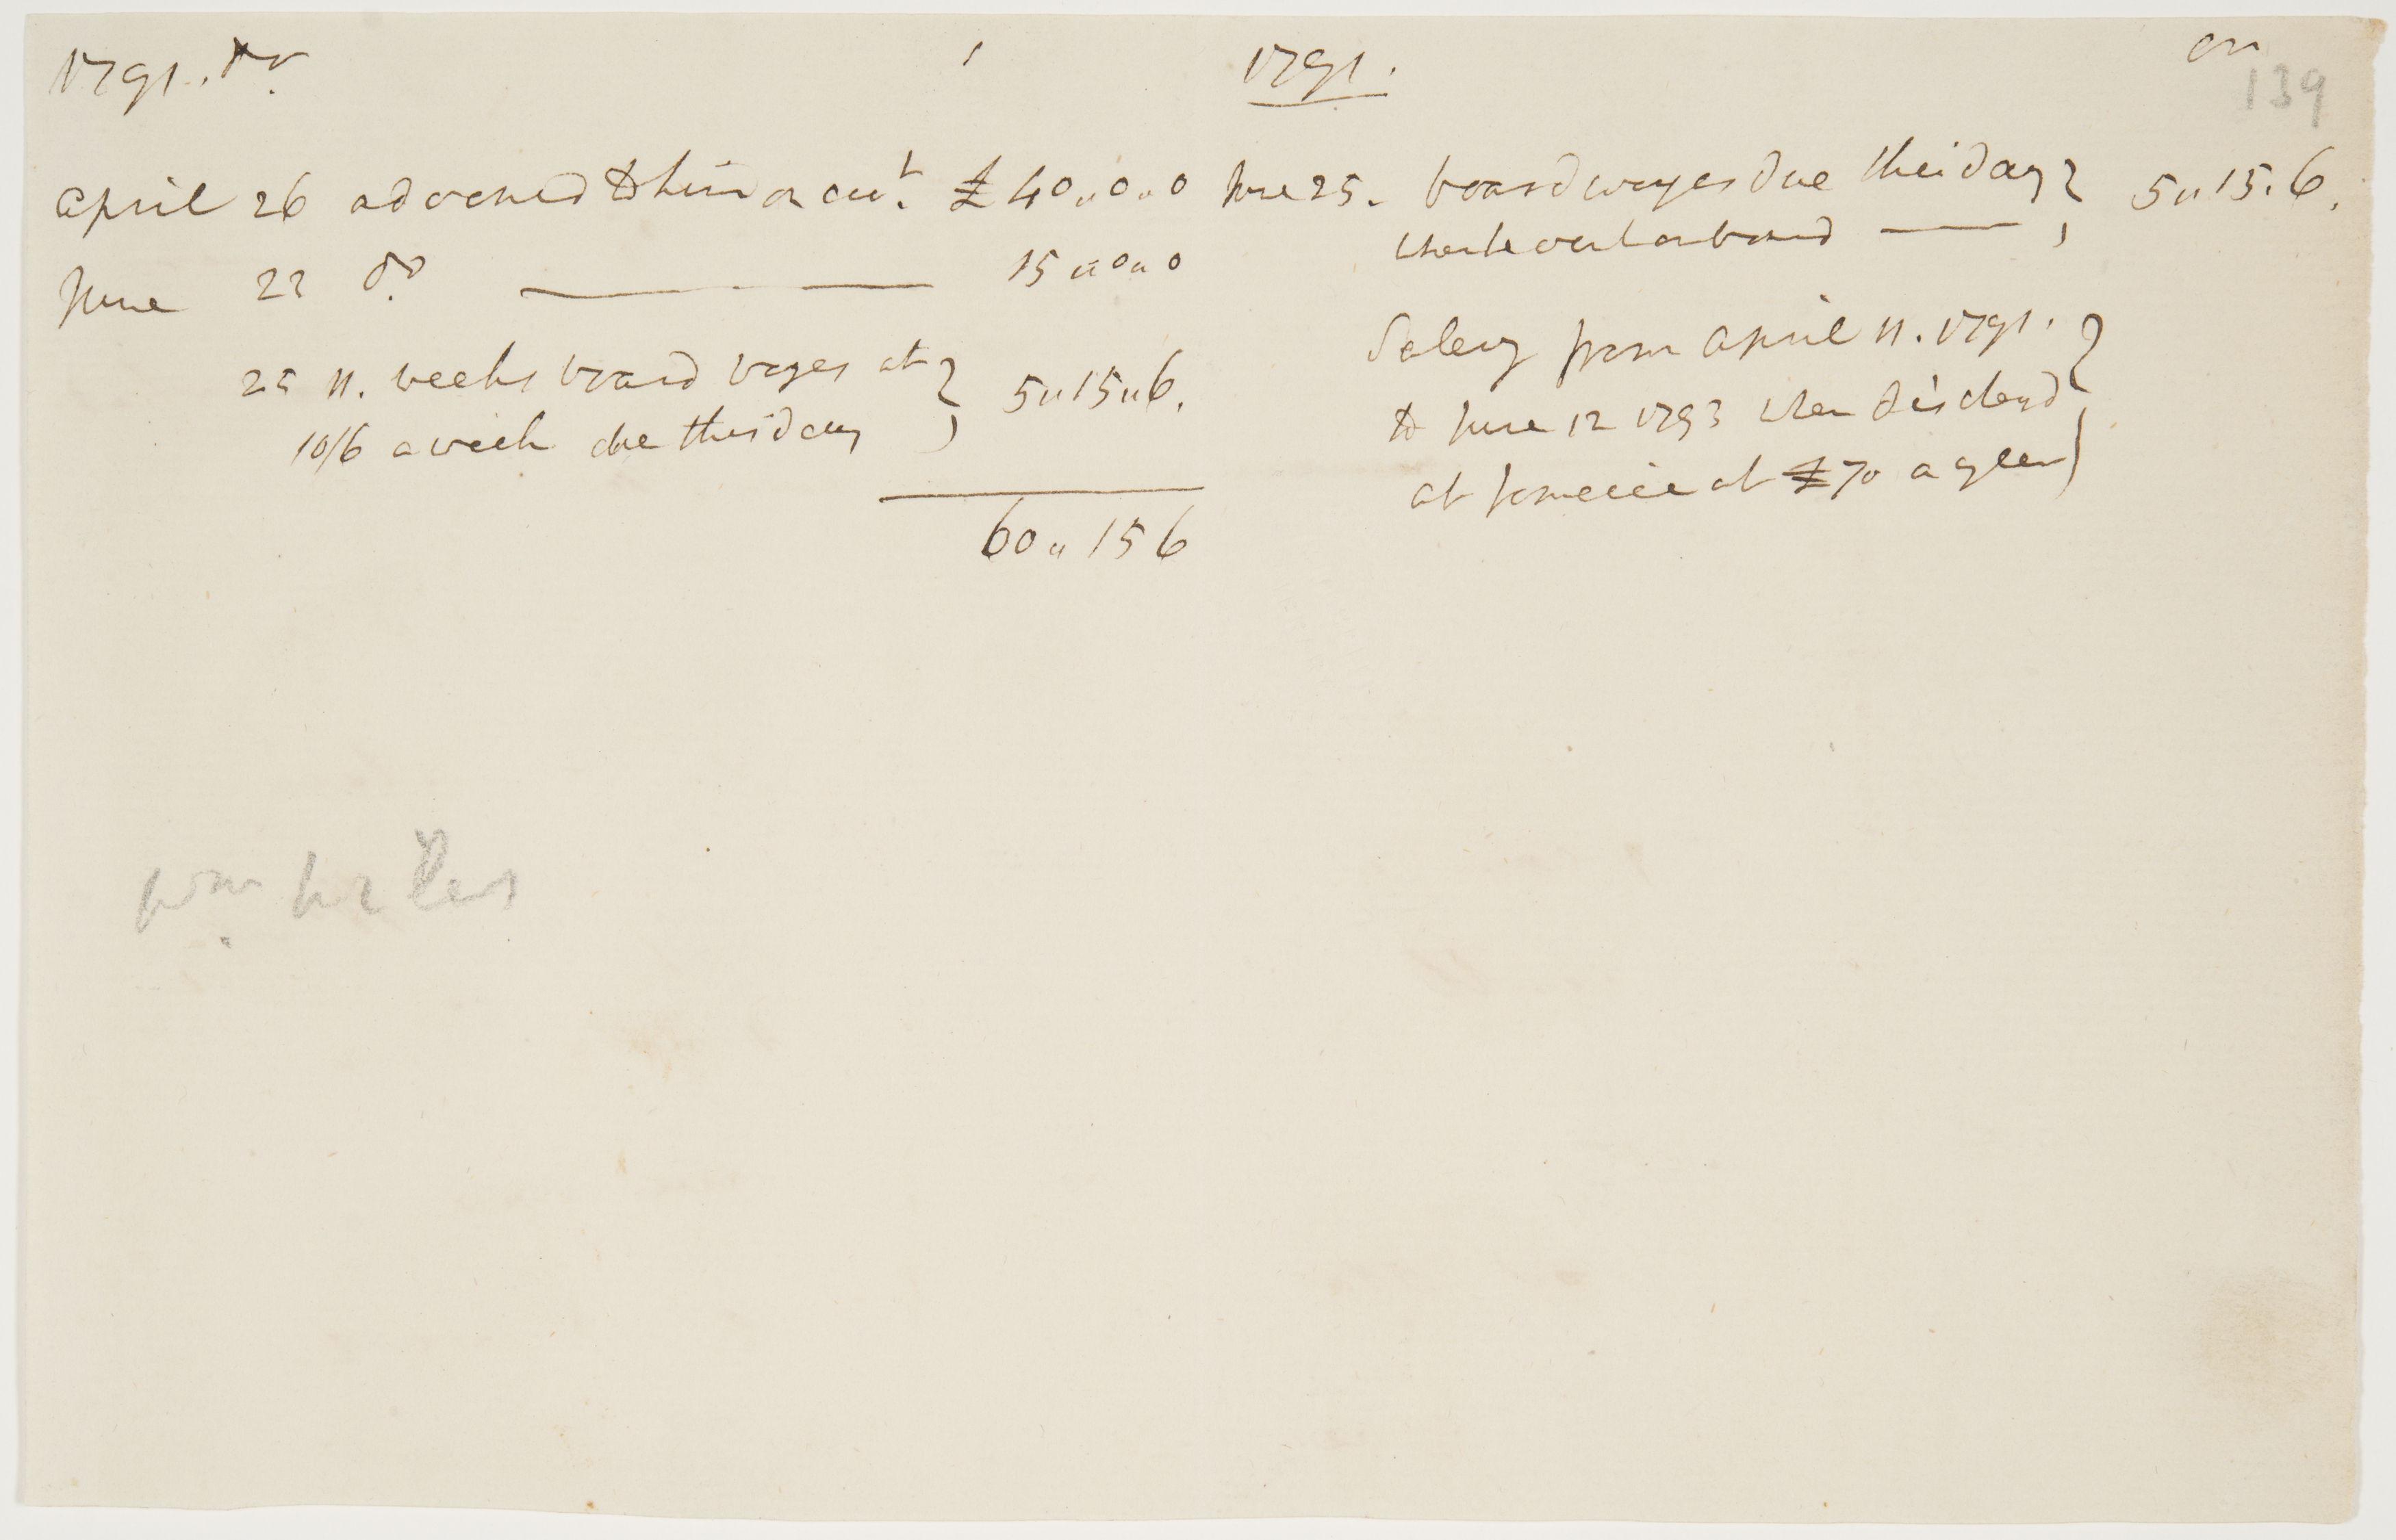 1791. Dr.
April 26 advanced to him on acct. £ 40 " 0 " 0
June 22 do. — 15 " 0 " 0
25 11. weeks board wages at
10/6 a week due this day } 5 " 15 " 6.
60 " 15 6
1791. Cr
139
June 25. board wages due this day
when he went on board — } 5 " 15 . 6.
Salery from April 11. 1791.
to June 12 1793 when dischargd
at Jamaica at £70 a year }